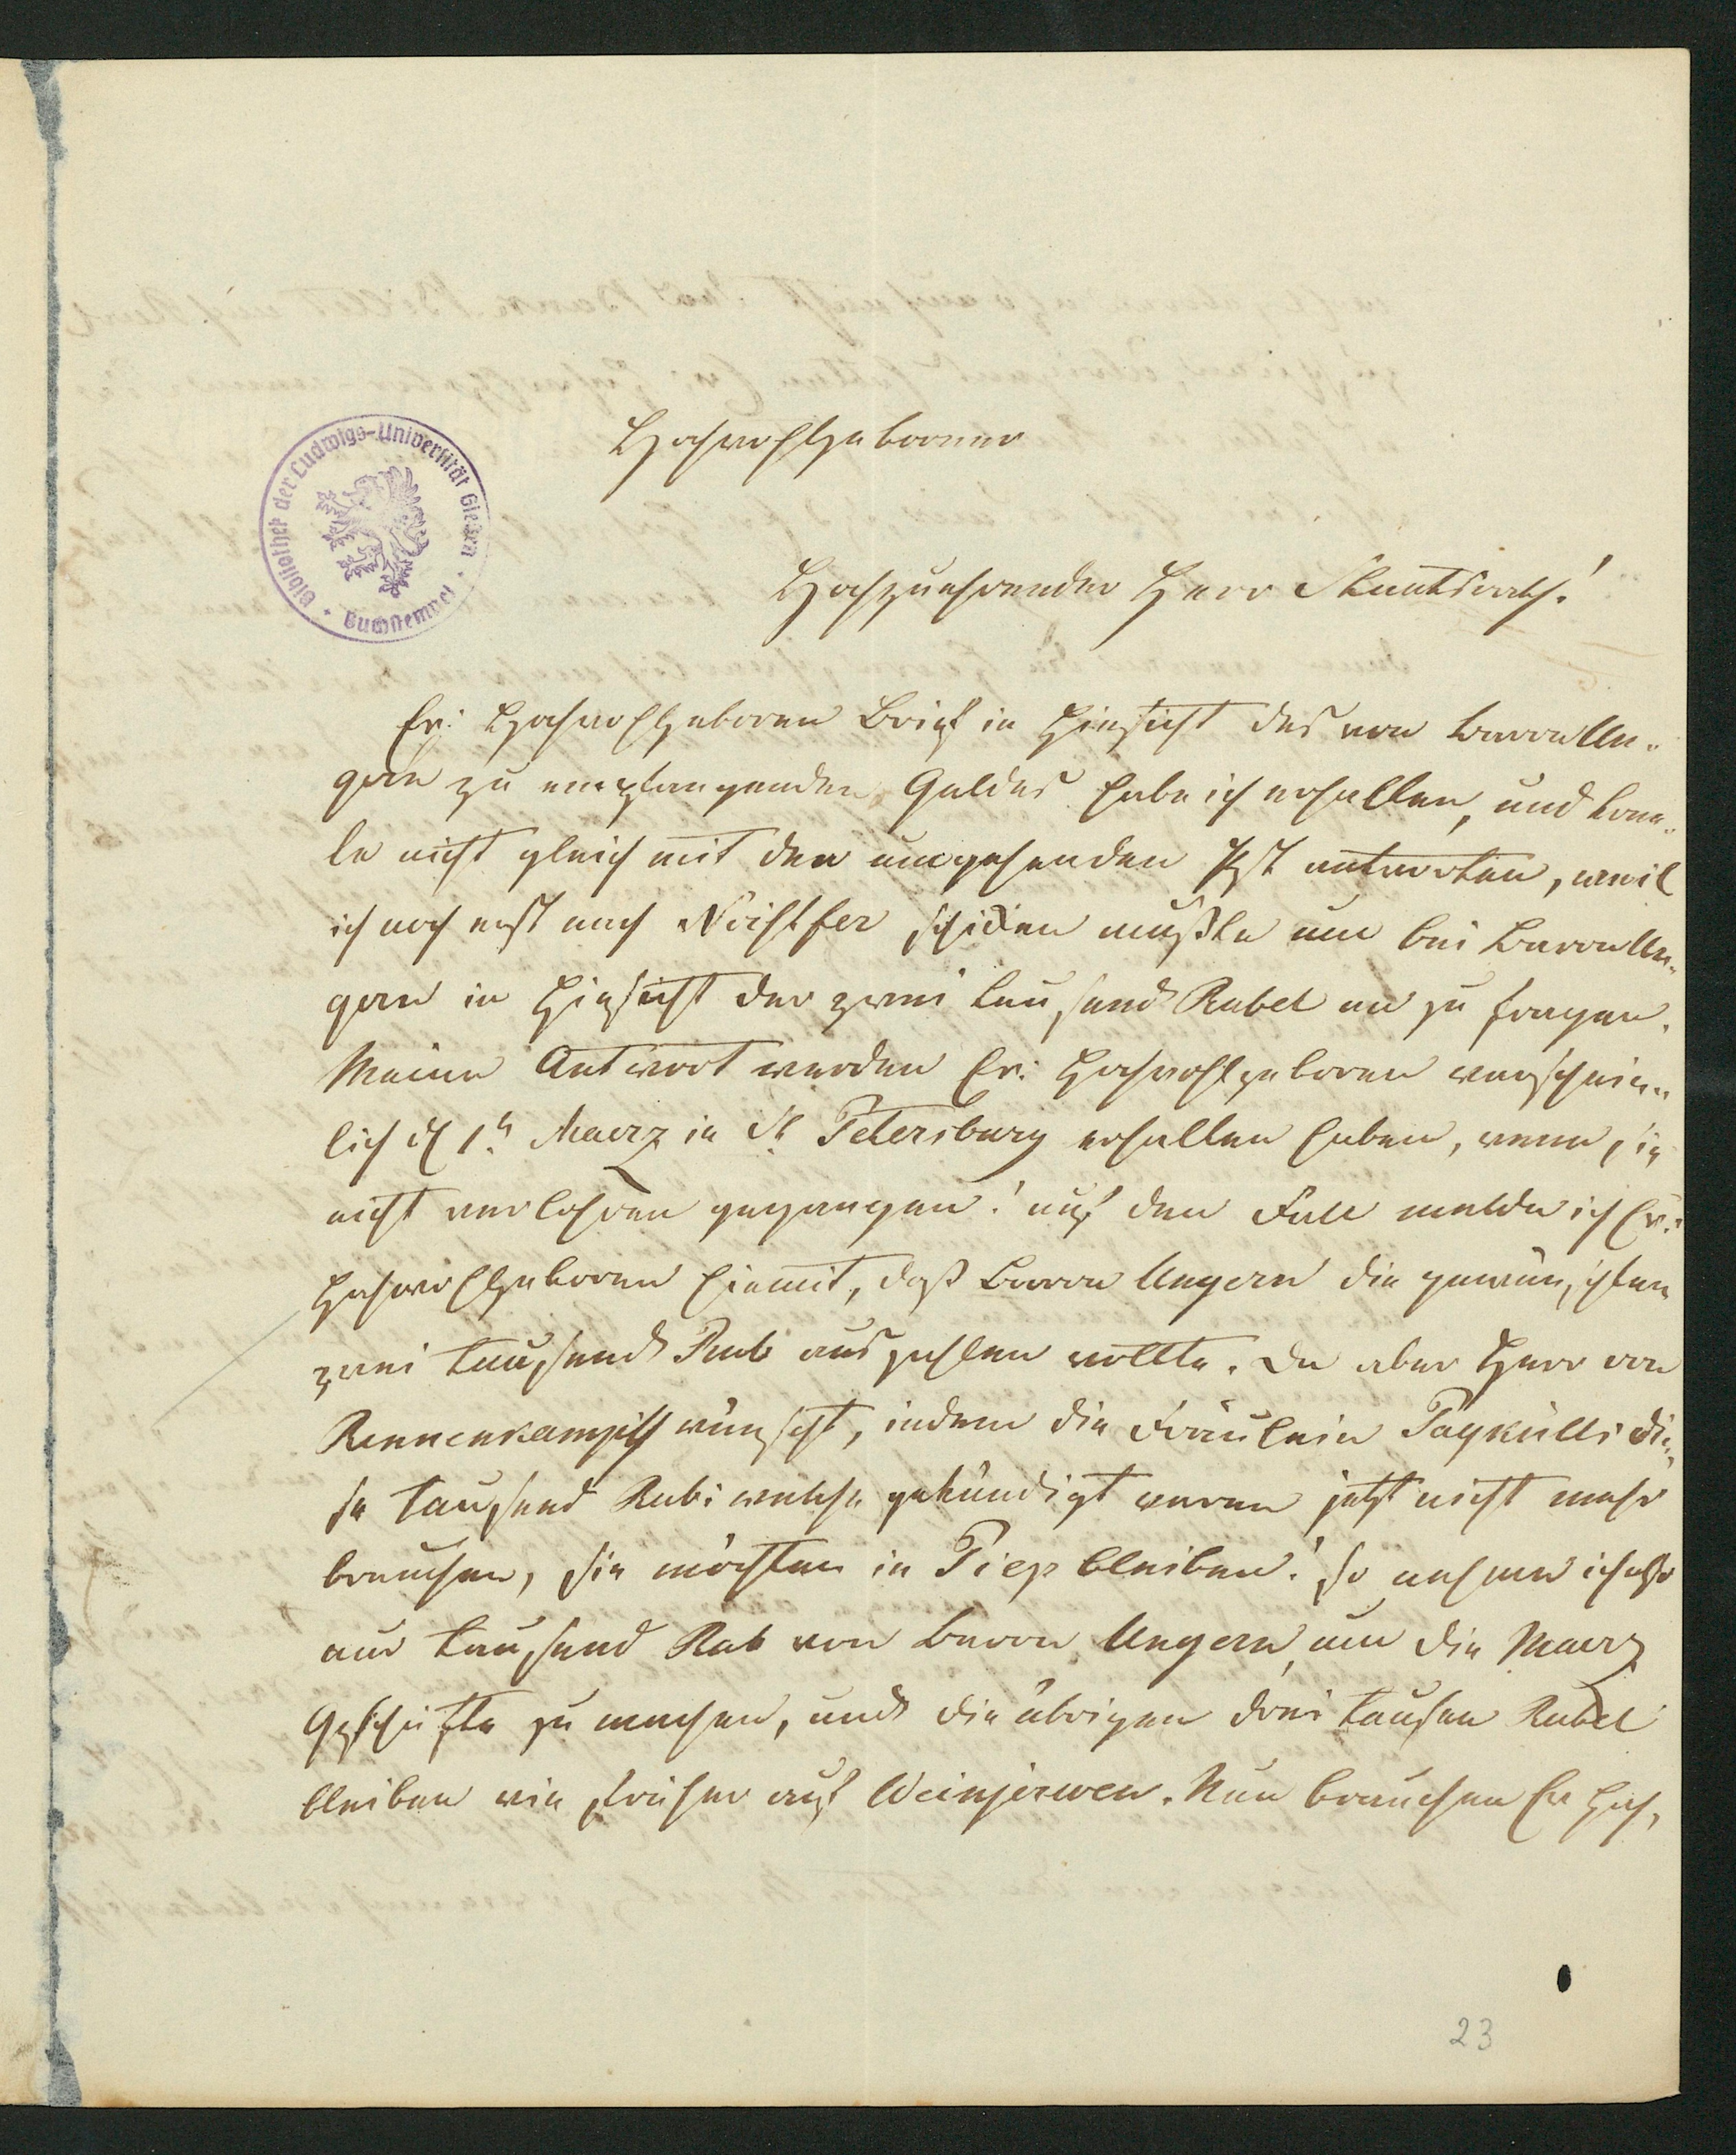 Hochwohlgeborner
Hochzuehrender Herr Staatsrath!
Bibliothek der Ludwigs-Universität Giessen · Buchstempel ·
Ew: Hochwohlgeboren Brief in Hinsicht des von Baron Un-
gern zu empfangenden Geldes habe ich erhallten, und kon-
te nicht gleich mit der umgehenden Post antworten, weil
ich noch erst nach Nöistfer schicken mußte um bei Baron Un-
gern in Hinsicht der zwei tausend Rubel an zu fragen.
Meine Antwort werden Ew: Hochwohlgeboren warschein-
lich d 1n Maerz in St Petersburg erhallten haben, wenn sie
nicht verlohren gegangen! auf den Fall melde ich Ew:
Hochwohlgeboren hiemit, daß Baron Ungern die gewünschten
zwei tausend Rub auszahlen wollte. Da aber Herr von
Rennenkampff wünscht, indem die Fräulein Taykülls die-
se tausend Rub: welche gekündigt waren jetzt nicht mehr
brauchen, sie möchten in Piep bleiben! so nehme ich also
nur tausend Rub von Baron Ungern, um die Maerz
Geschäfte zu machen, und die übrigen drei tausen Rubel
bleiben wie früher auf Weinjerwen. Nun brauchen Ew Hoch,
23